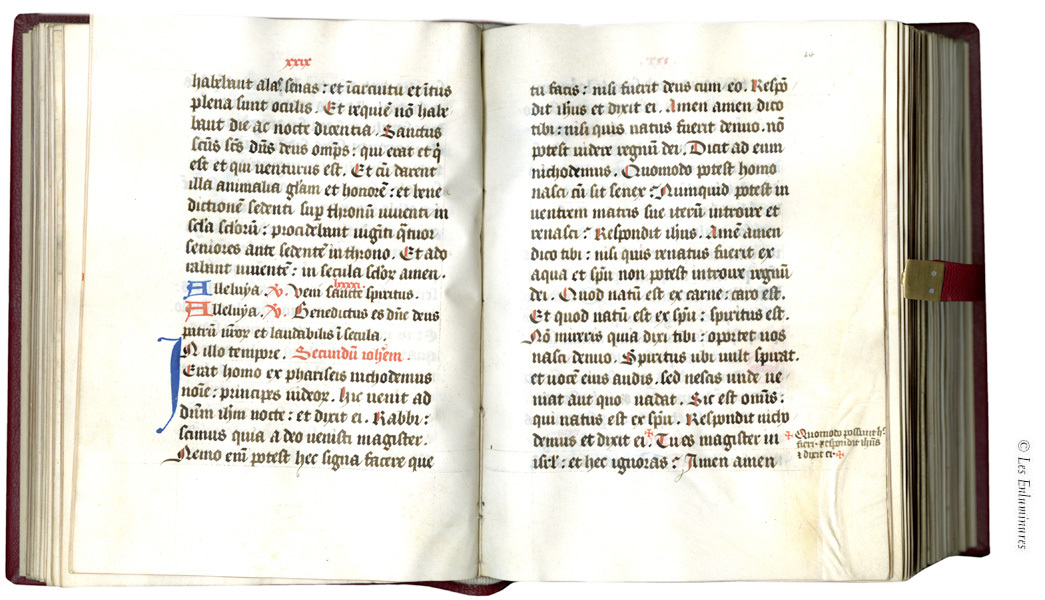 xxix
habebant alas senas : et ī circuitu et ītus
plena sunt oculis . Et requiē nō habe
bant die ac nocte dicentia . Sanctus
scūs scs dūs deus omps : qui erat et q̄
est et qui uenturus est . Et cū darent
illa animalia glam et honorē : et bene
dictionē sedenti sup thronū uiuenti in
scla sclorū : procidebant uigīti q̄tuor
seniores ante sedentē in throno . Et ado
rabant uiuentē : in secula sclor amen .
Alleluya . V . Veni sancte spiritus .
Alleluya . V . Benedictus es dūe deus
patrū uror et laudabilis ī secula .
IN illo tempore . Secundū iohem .
Erat homo ex phariseis nichodemus
noīe : princeps iudeor . Hic uenit ad
dnm ihm nocte : et dixit ei . Rabbi :
scimus quia a deo uenisti magister .
Nemo em potest hec signa facere que
tu facis : nisi fuerit deus cum eo . Respō
dit ihus et dixit ei . Amen amen dico
tibi : nisi quis natus fuerit denuo . nō
potest uidere regnū dei . Dicit ad eum
nichodemus . Quomodo potest homo
nasci cū sit senex ? Numquid potest in
uentrem matris sue iterū introire et
renasci ? Respondit ihus . Amē amen
dico tibi : nisi quis renatus fuerit ex
aqua et spū non potest introire regnū
dei . Quod natū est ex carne : caro est .
Et quod natū est ex spū : spiritus est .
Nō mireris quia dixi tibi : oportet uos
nasci denuo . Spiritus ubi uult spirat .
et uocē eius audis . sed nescis unde ue
niat aut quo uadat . Sic est omīs :
qui natus est ex spū . Respondit nicho
demus et dixit ei . Tu es magister in
isrl : et hec ignoras ? Amen amen
Quomodo possunt h
fieri . respondit ihus
et dixit ei .
© Les Enluminures